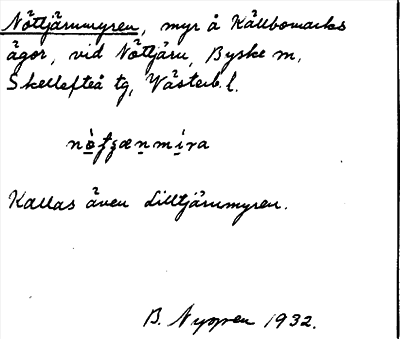 Nöttjärnmyren, myr å Källbomarks
ägor, vid Nöttjärn, Byske sn,
Skellefteå tg, Västerb. l.
Kallas även Lilltjärnmyren.
B. Nyppen 1932.